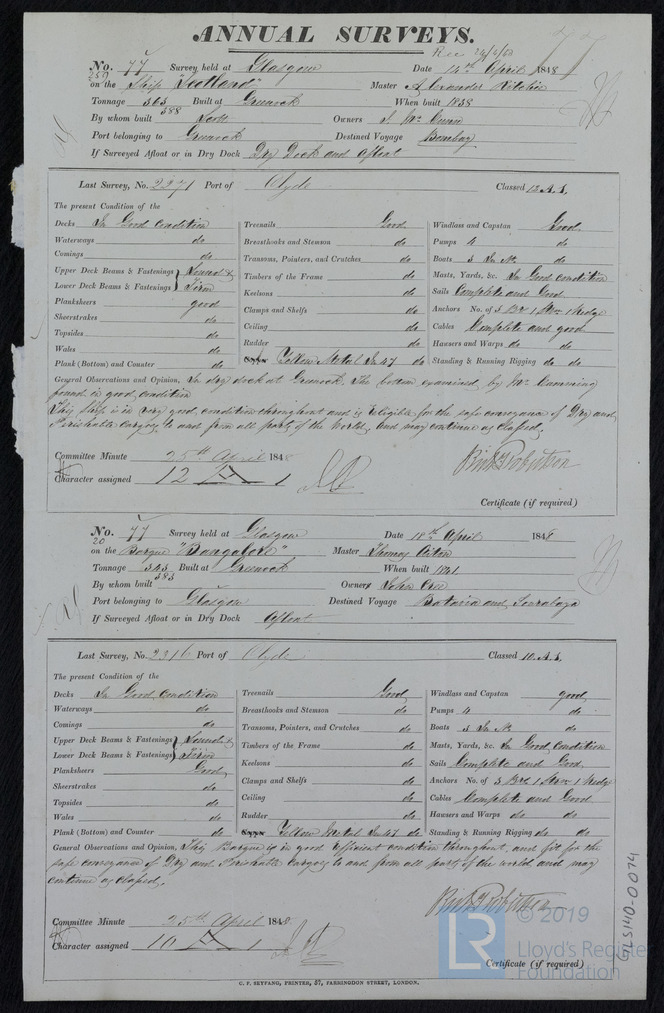 ANNUAL SURVEYS.
Rec 24/4/48
No. 77 Survey held at Glasgow Date 14th April 1848
on the Ship "Scotland" Master Alexander Ritchie
Tonnage 563 Built at Greenock When built 1838
588
By whom built Scott Owners
Port belonging to Greenock Destined Voyage Bombay
If Surveyed Afloat or in Dry Dock Dry Dock and Afloat
Last Survey, No. 2271 Port of Clyde Classed 12 A.1.
The present Condition of the
Decks In Good Condition Treenails Good Windlass and Capstan Good
Waterways do Breasthooks and Stemson do Pumps 4 do
Comings do Transoms, Pointers, and Crutches do Boats 3 In No. do
Upper Deck Beams & Fastenings } Sound & Timbers of the Frame do Masts, Yards, &c. In Good condition
Lower Deck Beams & Fastenings } Firm Keelsons do Sails Complete and Good
Planksheers good Clamps and Shelfs do Anchors No. of 3 Br 1 Strm 1 Kedge
Sheerstrakes do Ceiling do Cables Complete and good
Topsides do Rudder do Hawsers and Warps do do
Wales do Yellow Metal In 47 do Standing & Running Rigging do do
Plank (Bottom) and Counter do
General Observations and Opinion, In dry dock at Greenock. The bottom examined by Mr Cumming
found in good condition
This ship is in very good condition throughout and is Eligible for the safe conveyance of Dry and
Perishable Cargoes to and from all parts of the World, and may continue as Classed.
Committee Minute 25th April 1848
Character assigned 12 A 1
Certificate (if required)
No. 77 Survey held at Glasgow Date 18th April 1848
20
on the Barque "Bangalore" Master Thomas
Tonnage 343 Built at Greenock When built 1841
383
By whom built Owners John Orr
Port belonging to Glasgow Destined Voyage Batavia and Sourabaya
If Surveyed Afloat or in Dry Dock Afloat
Last Survey, No. 2316 Port of Clyde Classed 10 A.1.
The present Condition of the
Decks In Good Condition Treenails Good Windlass and Capstan good
Waterways do Breasthooks and Stemson do Pumps 4 do
Comings do Transoms, Pointers, and Crutches do Boats 3 In No. do
Upper Deck Beams & Fastenings } Sound & Timbers of the Frame do Masts, Yards, &c. In Good Condition
Lower Deck Beams & Fastenings } Firm Keelsons do Sails Complete and Good
Planksheers Good Clamps and Shelfs do Anchors No. of 3 Brs 1 Strm 1 Kedge
Sheerstrakes do Ceiling do Cables Complete and Good
Topsides do Rudder do Hawsers and Warps do do
Wales do Yellow Metal In 47 do Standing & Running Rigging do do
Plank (Bottom) and Counter do
General Observations and Opinion, This Barque is in good Efficient condition throughout, and fit for the
safe conveyance of Dry and Perishable Cargoes to and from all parts of the world and may
continue as Classed.
Committee Minute 25th April 1848
Character assigned 10 A 1
Certificate (if required)
C. F. SEYFANG, PRINTER, 57, FARRINGDON STREET, LONDON.
GLS140-0074
LR © 2019
Lloyd's Register
Foundation